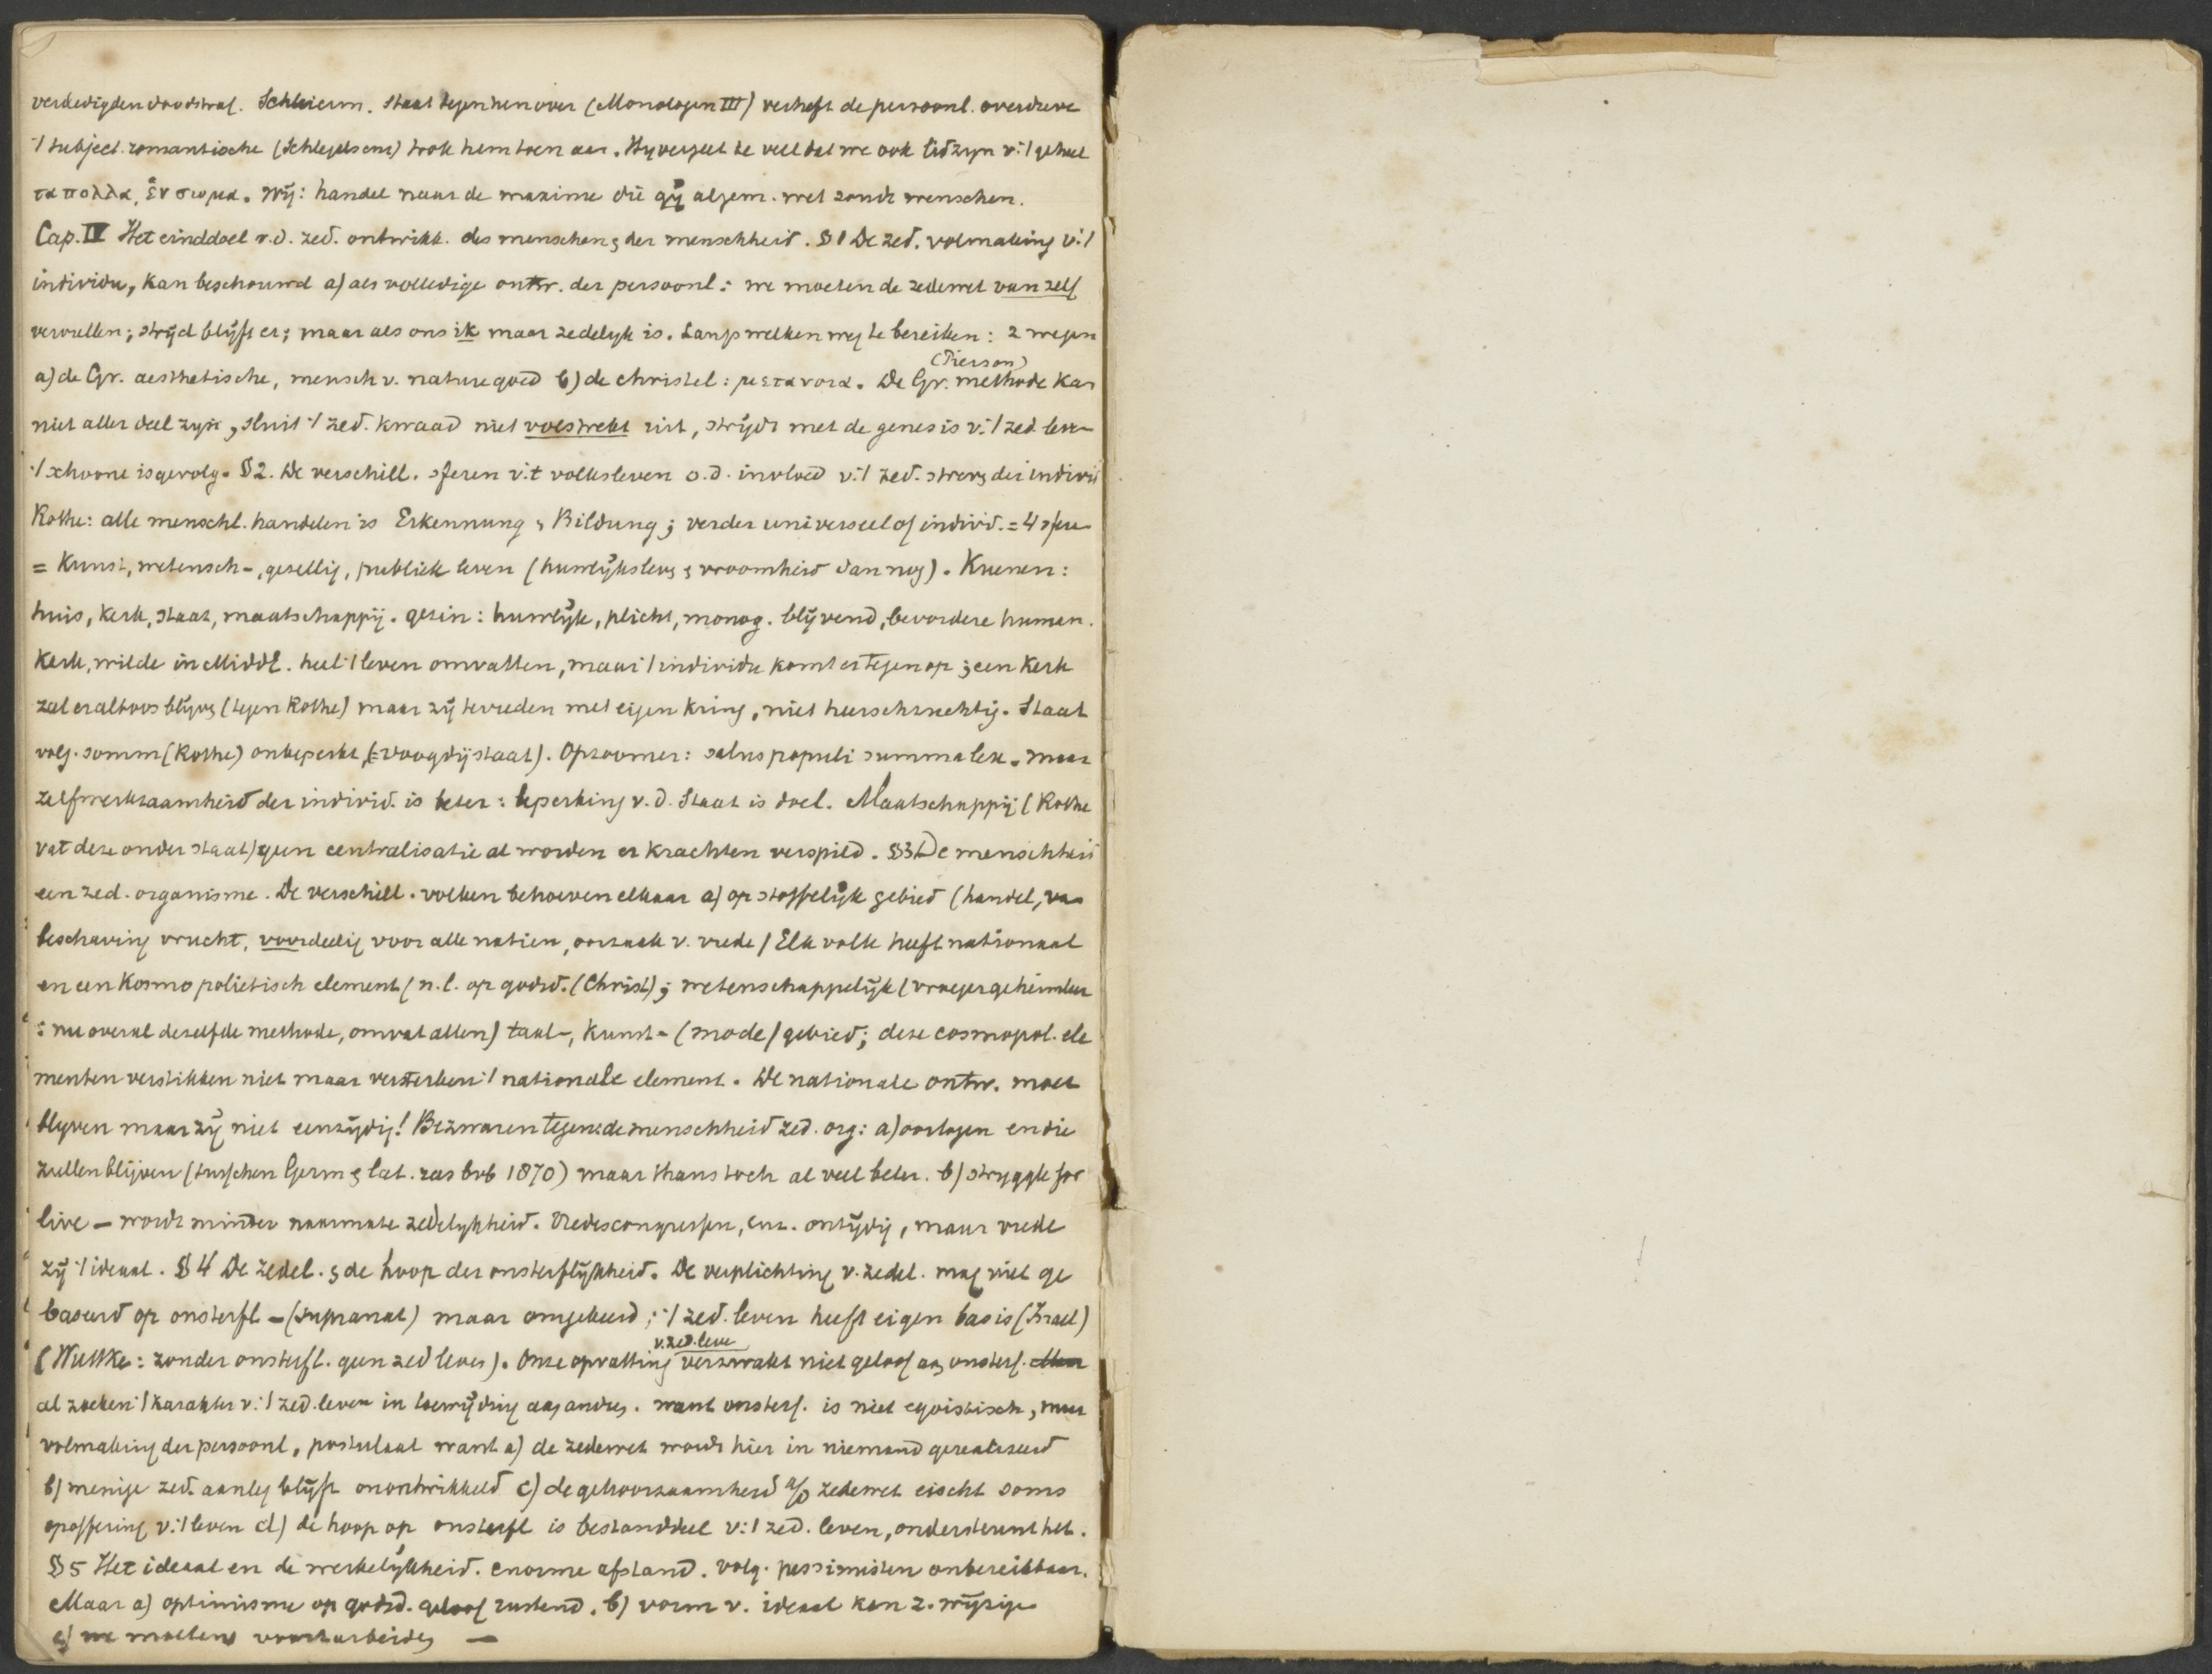 verdedigden doodstraf. Schleierm. staat tegenhen over (Monologen III) verheft de persoonl. overdreve
't subject. romantische (Schlegels enz) trok hem toen aan. Hy vergeet te veel dat we ook lid zyn v.'t geheel
τα πολλα, ἑν σωμα. Wij: handel naar de maxime die gij algem. wet vondt menschen.
Cap. IV Het einddoel v.d. zed. ontwikk. des menschen & der menschheid. § 1 De zed. volmaking v.'t
individu, kan beschouwd a) als volledige ontw. der persoonl: we moeten de zedewet van zelf
vervullen; strijd blijft er; maar als ons ik maar zedelyk is. Langs welken weg te bereiken: 2 wegen
(Pierson)
a) de Gr. aesthetische, mensch v. nature goed b) de christel: μετανοια. De Gr. methode kan
niet aller deel zyn, sluit 't zed. kwaad niet volstrekt uit, strijdt met de genesis v.'t zed. leven
't schoone is gevolg. § 2. De verschill. sferen v.'t volksleven o.d. invloed v.'t zed. streven der individ
Rothe: alle menschl. handelen is Erkennung & Bildung; verder universeel of individ. = 4 sferen
= Kunst, wetensch-, gesellig, publiek leven (huwlijksleven & vroomheid dan nog). Kuenen:
huis, kerk, staat, maatschappij. gezin: huwlijk, plicht, monog. blijvend, bevordere human.
Kerk, wilde in Midd. heel 't leven omvatten, maar 't individu komt er tegen op; een Kerk
zal er altoos blijven (tegen Rothe) maar zij tevreden met eigen kring, niet heerschzuchtig. Staat
volg. somm (Rothe) onbeperkt, (= voogdijstaat). Opzoomer: salus populi summa lex. maar
zelfwerkzaamheid der individ. is beter: beperking v.d. Staat is doel. Maatschappij (Rothe
vat deze onder staat) geen centralisatie al worden er krachten verspild. § 3 De menschheid
een zed. organisme. De verschill. volken behoeven elkaar a) op stoffelijk gebied (handel, van
beschaving vrucht, voordeelig voor alle natien, oorzaak v. vrede / Elk volk heeft nationaal
en een Kosmopolitisch element (n.l. op godsd. (Christ); wetenschappelijk (vroeger geheimleer
: nu overal dezelfde methode, omvat allen) taal-, Kunst- (mode) gebied; deze cosmopol. ele
menten verstikken niet maar versterken 't nationale element. De nationale ontw. moet
blyven maar zij niet eenzijdig! Bezwaren tegen: de menschheid zed. org: a) oorlogen en die
zullen blijven (tusschen Germ & lat. ras bvb 1870) maar thans toch al veel beter. b) struggle for
live — wordt minder naarmate zedelykheid. Vredescongressen, enz. ontijdig, maar vrede
zij 't ideaal. § 4 De zedel. & de hoop der onsterflijkheid. De verplichting v. zedel. mag niet ge
baseerd op onsterfl — (supranat) maar omgekeerd; 't zed. leven heeft eigen basis (Israel)
v. zed. leve
(Wuttke: zonder onsterfl. geen zed leven). Onze opvatting verzwakt niet geloof aan onsterf.
al zoeken 't karakter v.'t zed. leven in toewijding aan andren. want onsterf. is niet egoistisch, maar
volmaking der persoonl, postulaat want a) de zedewet wordt hier in niemand gerealiseerd
b) menige zed. aanleg blijft onontwikkeld c) de gehoorzaamheid a/d zedewet eischt soms
opoffering v.'t leven d) de hoop op onsterfl is bestanddeel v.'t zed. leven, ondersteunt het.
§ 5 Het ideaal en de werkelijkheid. enorme afstand. volg. pessimisten onbereikbaar.
Maar a) optimisme op godsd. geloof rustend. b) vorm v. ideaal kan z. wijzigen
c) we moeten voortarbeiden —